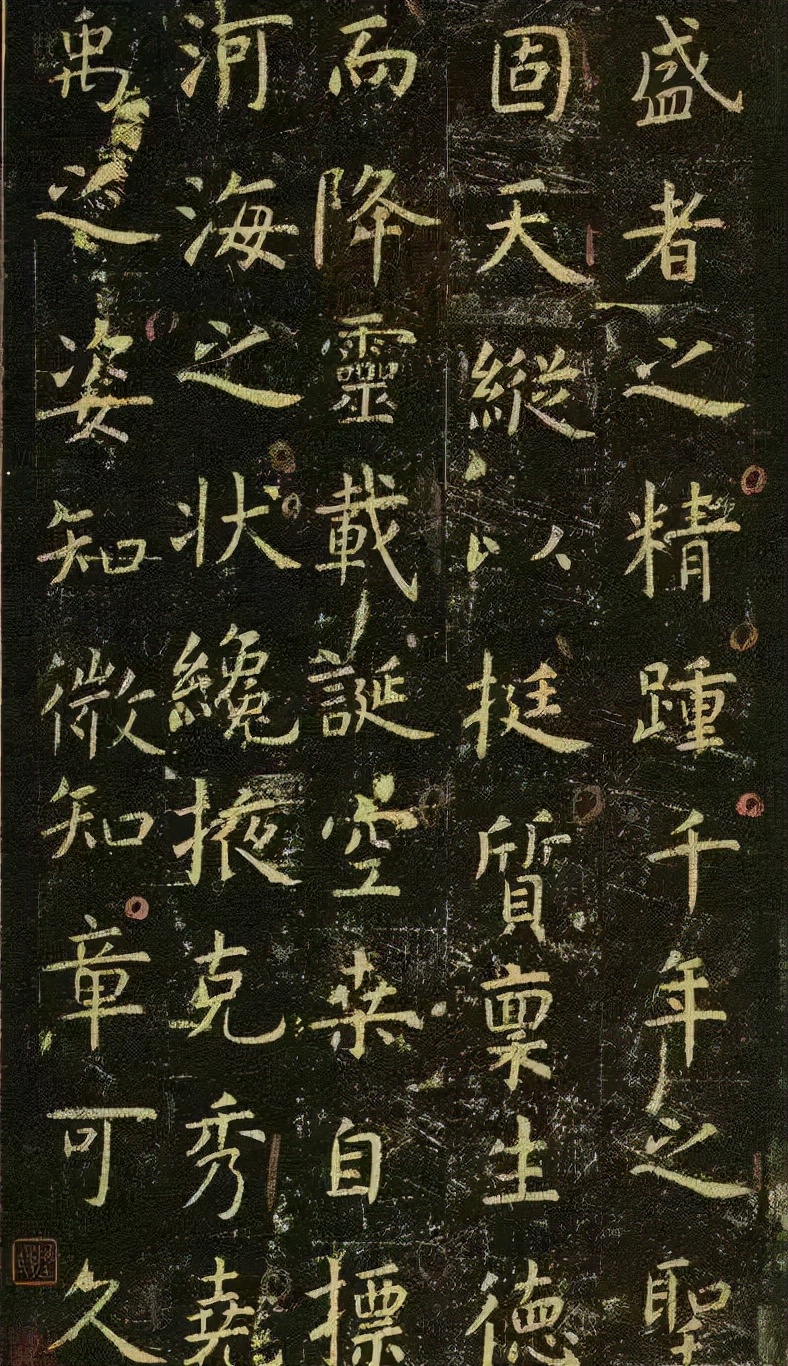 盛者之精踵千年之聖
固天縱以挺質稟生德
而降靈載誕空桒自摽
河海之状纔掖克秀堯
禹之姿知微知章可久